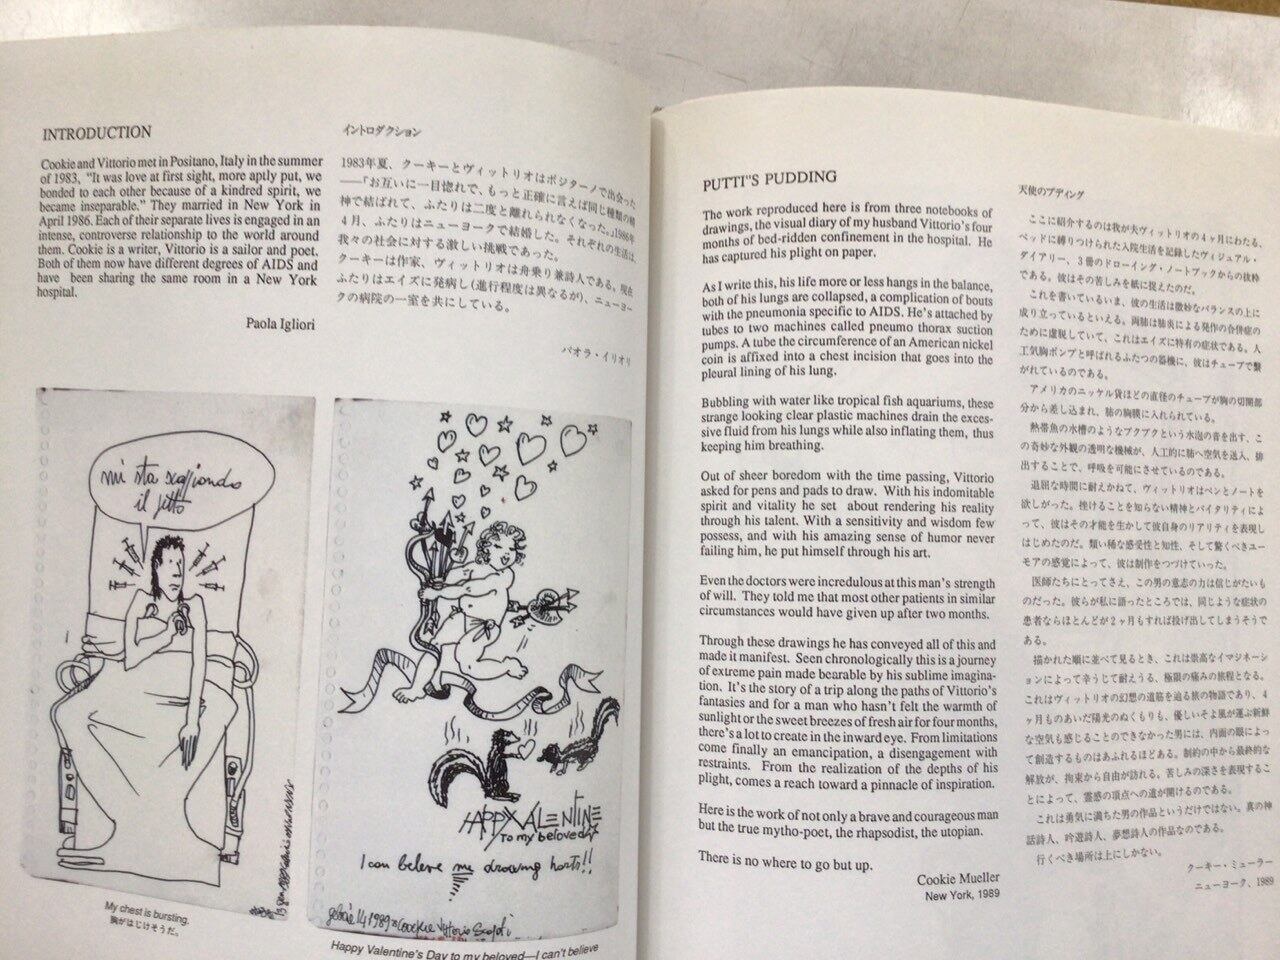 INTRODUCTION
Cookie and Vittorio met in Positano, Italy in the summer
of 1983, “It was love at first sight, more aptly put, we
bonded to each other because of a kindred spirit, we
became inseparable.” They married in New York in
April 1986. Each of their separate lives is engaged in an
intense, controverse relationship to the world around
them. Cookie is a writer, Vittorio is a sailor and poet.
Both of them now have different degrees of AIDS and
have been sharing the same room in a New York
hospital.
Paola Igliori
イントロダクション
1983年夏、クーキーとヴィットリオはポジターノで出会った
——「お互いに一目惚れで、もっと正確に言えば同じ種類の精
神で結ばれて、ふたりは二度と離れられなくなった。」1986年
4月、ふたりはニューヨークで結婚した。それぞれの生活は、
我々の社会に対する激しい挑戦であった。
クーキーは作家、ヴィットリオは舟乗り兼詩人である。現在
ふたりはエイズに発病し(進行程度は異なるが)、ニューヨー
クの病院の一室を共にしている。
パオラ・イリオリ
mi sta scoppiando
il petto
My chest is bursting.
胸がはじけそうだ。
HAPPY VALENTINE
to my beloved
I can beleve me drawing harts!!
1989 Cookie Vittorio Scarpati
Happy Valentine's Day to my beloved—I can't believe
PUTTI"S PUDDING
The work reproduced here is from three notebooks of
drawings, the visual diary of my husband Vittorio's four
months of bed-ridden confinement in the hospital. He
has captured his plight on paper.
As I write this, his life more or less hangs in the balance,
both of his lungs are collapsed, a complication of bouts
with the pneumonia specific to AIDS. He's attached by
tubes to two machines called pneumo thorax suction
pumps. A tube the circumference of an American nickel
coin is affixed into a chest incision that goes into the
pleural lining of his lung.
Bubbling with water like tropical fish aquariums, these
strange looking clear plastic machines drain the exces-
sive fluid from his lungs while also inflating them, thus
keeping him breathing.
Out of sheer boredom with the time passing, Vittorio
asked for pens and pads to draw. With his indomitable
spirit and vitality he set about rendering his reality
through his talent. With a sensitivity and wisdom few
possess, and with his amazing sense of humor never
failing him, he put himself through his art.
Even the doctors were incredulous at this man's strength
of will. They told me that most other patients in similar
circumstances would have given up after two months.
Through these drawings he has conveyed all of this and
made it manifest. Seen chronologically this is a journey
of extreme pain made bearable by his sublime imagina-
tion. It's the story of a trip along the paths of Vittorio's
fantasies and for a man who hasn't felt the warmth of
sunlight or the sweet breezes of fresh air for four months,
there's a lot to create in the inward eye. From limitations
come finally an emancipation, a disengagement with
restraints. From the realization of the depths of his
plight, comes a reach toward a pinnacle of inspiration.
Here is the work of not only a brave and courageous man
but the true mytho-poet, the rhapsodist, the utopian.
There is no where to go but up.
Cookie Mueller
New York, 1989
天使のプディング
ここに紹介するのは我が夫ヴィットリオの4ヶ月にわたる、
ベッドに縛りつけられた入院生活を記録したヴィジュアル・
ダイアリー、3冊のドローイング・ノートブックからの抜粋
である。彼はその苦しみを紙に捉えたのだ。
これを書いているいま、彼の生活は微妙なバランスの上に
成り立っているといえる。両肺は肺炎による発作の合併症の
ために虚脱していて、これはエイズに特有の症状である。人
工気胸ポンプと呼ばれるふたつの器機に、彼はチューブで繋
がれているのである。
アメリカのニッケル貨ほどの直径のチューブが胸の切開部
分から差し込まれ、肺の胸膜に入れられている。
熱帯魚の水槽のようなブクブクという水泡の音を出す、こ
の奇妙な外観の透明な機械が、人工的に肺へ空気を送入、排
出することで、呼吸を可能にさせているのである。
退屈な時間に耐えかねて、ヴィットリオはペンとノートを
欲しがった。挫けることを知らない精神とバイタリティによ
って、彼はその才能を生かして彼自身のリアリティを表現し
はじめたのだ。類い稀な感受性と知性、そして驚くべきユー
モアの感覚によって、彼は制作をつづけていった。
医師たちにとってさえ、この男の意志の力は信じがたいも
のだった。彼らが私に語ったところでは、同じような症状の
患者ならほとんどが2ヶ月もすれば投げ出してしまうそうで
ある。
描かれた順に並べて見るとき、これは崇高なイマジネーシ
ョンによって辛うじて耐えうる、極限の痛みの旅程となる。
これはヴィットリオの幻想の道筋を辿る旅の物語であり、4
ヶ月ものあいだ陽光のぬくもりも、優しいそよ風が運ぶ新鮮
な空気も感じることのできなかった男には、内面の眼によっ
て創造するものはあふれるほどある。制約の中から最終的な
解放が、拘束から自由が訪れる。苦しみの深さを表現するこ
とによって、霊感の頂点への道が開けるのである。
これは勇気に満ちた男の作品というだけではない。真の神
話詩人、吟遊詩人、夢想詩人の作品なのである。
行くべき場所は上にしかない。
クーキー・ミューラー
ニューヨーク、1989